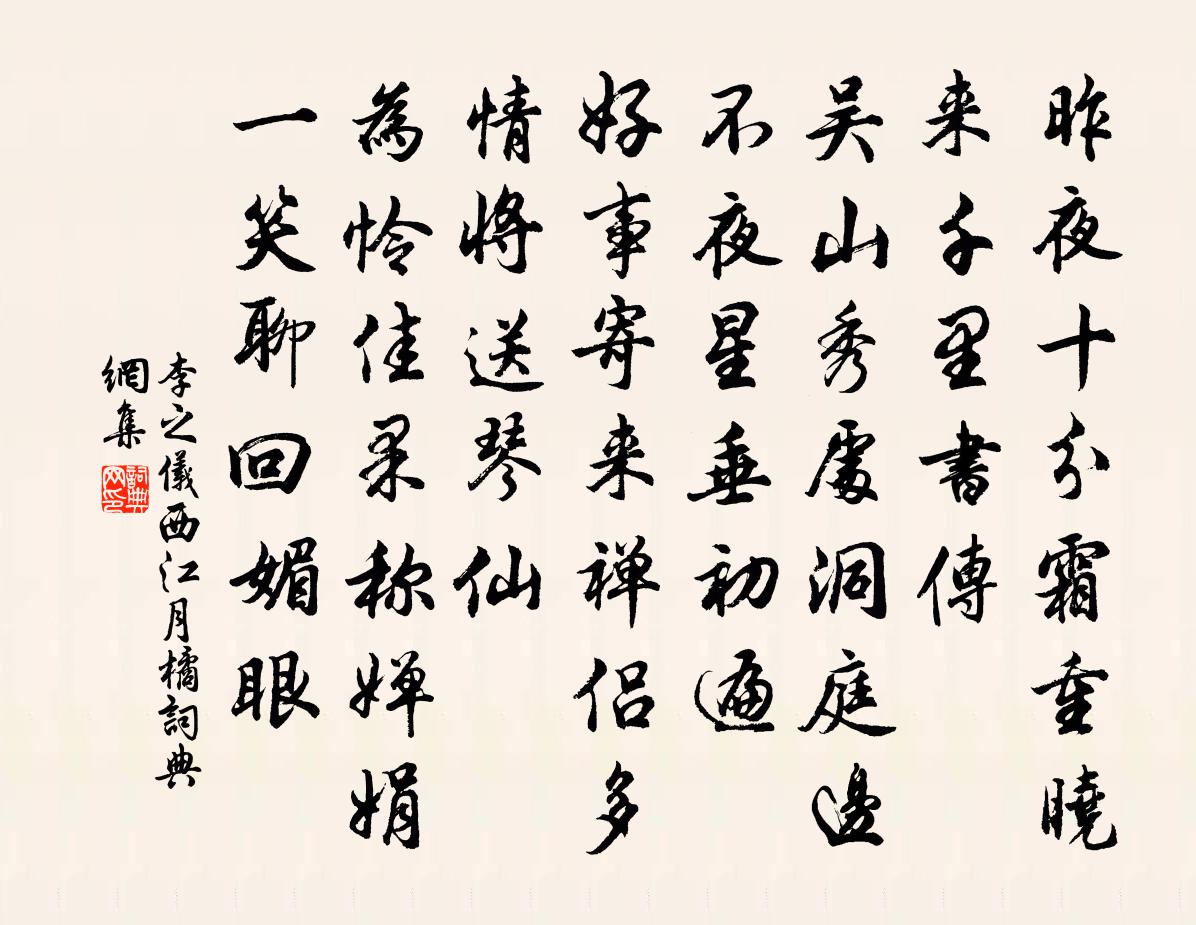 昨夜十分霜重曉
来千里書傳
吴山秀處洞庭邊
不夜星垂初遍
好事寄来禅侣多
情將送琴仙
為怜佳果称婵娟
一笑聊回媚眼
李之儀西江月橘詞典
網集
詞典
网印